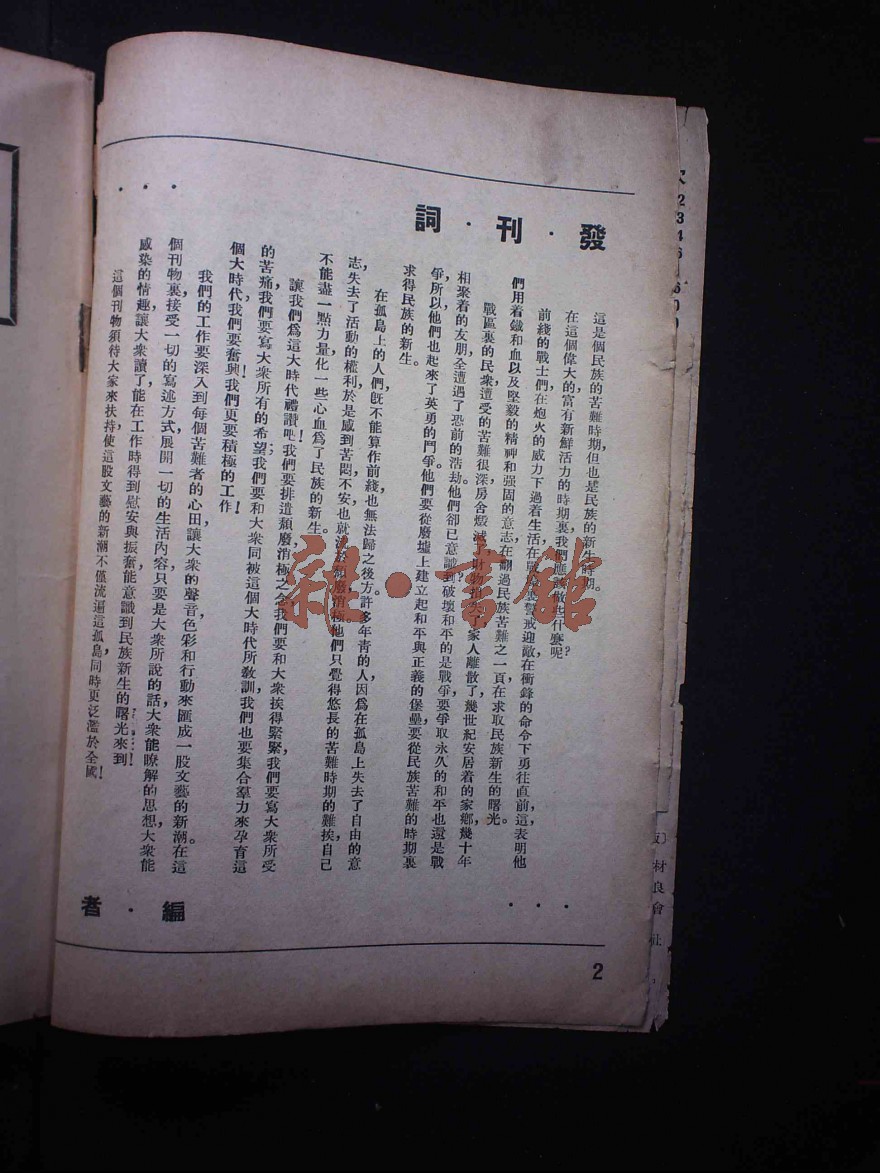 發·刊·詞
這是個民族的苦難時期但也是民族的新生時期。
在這個偉大的富有新鮮活力的時期裏我們應該做些什麼呢?
前綫的戰士們在炮火的威力下過着生活在戒迎敵在衝鋒的命令下勇往直前,這表明他
們用着鐵和血以及堅毅的精神和强固的意志,在翻過民族苦難之一頁在求取民族新生的曙光。
戰區裏的民衆,遭受的苦難很深房舍燬滅了財物損失了家人離散了,幾世紀安居着的家鄉,幾十年
相聚着的友朋全遭遇了恐前的浩劫。他們卻已意識到破壞和平的是戰爭,要爭取永久的和平也還是戰
爭,所以他們也起來了英勇的鬥爭。他們要從廢墟上建立起和平與正義的堡壘,要從民族苦難的時期裏
求得民族的新生。
在孤島上的人們,旣不能算作前綫也無法歸之後方許多年靑的人,因爲在孤島上失去了自由的意
志,失去了活動的權利,於是感到苦悶不安,也就頹廢消極。他們只覺得悠長的苦難時期的難挨,自己
不能盡一點力量化一些心血爲了民族的新生。
讓我們爲這大時代禮讚吧!我們要排遣頹廢消極之念,我們要和大衆挨得緊緊,我們要寫大衆所受
的苦痛,我們要寫大衆所有的希望;我們要和大衆同被這個大時代所敎訓,我們也要集合羣力來孕育這
個大時代。我們要奮興!我們更要積極的工作!
我們的工作要深入到每個苦難者的心田,讓大衆的聲音色彩和行動來匯成一股文藝的新潮。在這
個刊物裏,接受一切的寫述方式,展開一切的生活內容,只要是大衆所說的話,大衆能瞭解的思想,大衆能
感染的情趣,讓大衆讀了,能在工作時得到慰安與振奮,能意識到民族新生的曙光來到!
這個刊物須待大家來扶持,使這股文藝的新潮不僅流遍這孤島,同時更泛濫於全國!
編·者
2
雜·書館